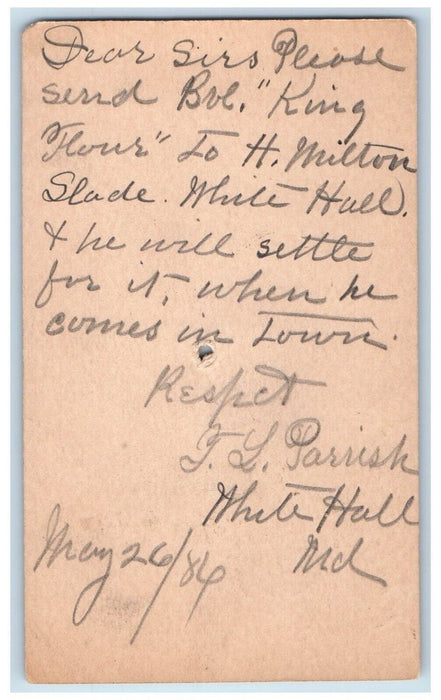 Dear Sirs Please
send Bbl. "King
Flour" to H. Milton
Slade. White Hall.
& he will settle
for it, when he
comes in town.
Respct
T. L. Parrish
White Hall
Md
May 26/86